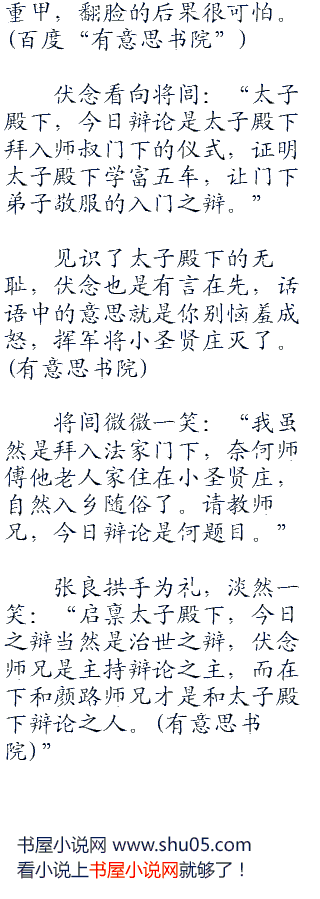 重甲，翻脸的后果很可怕。
(百度“有意思书院”)
伏念看向将闾：“太子
殿下，今日辩论是太子殿下
拜入师叔门下的仪式，证明
太子殿下学富五车，让门下
弟子敬服的入门之辩。”
见识了太子殿下的无
耻，伏念也是有言在先，话
语中的意思就是你别恼羞成
怒，挥军将小圣贤庄灭了。
(有意思书院)
将闾微微一笑：“我虽
然是拜入法家门下，奈何师
傅他老人家住在小圣贤庄，
自然入乡随俗了。请教师
兄，今日辩论是何题目。”
张良拱手为礼，淡然一
笑：“启禀太子殿下，今日
之辩当然是治世之辩，伏念
师兄是主持辩论之主，而在
下和颜路师兄才是和太子殿
下辩论之人。(有意思书
院)”
书屋小说网 www.shu05.com
看小说上书屋小说网就够了！